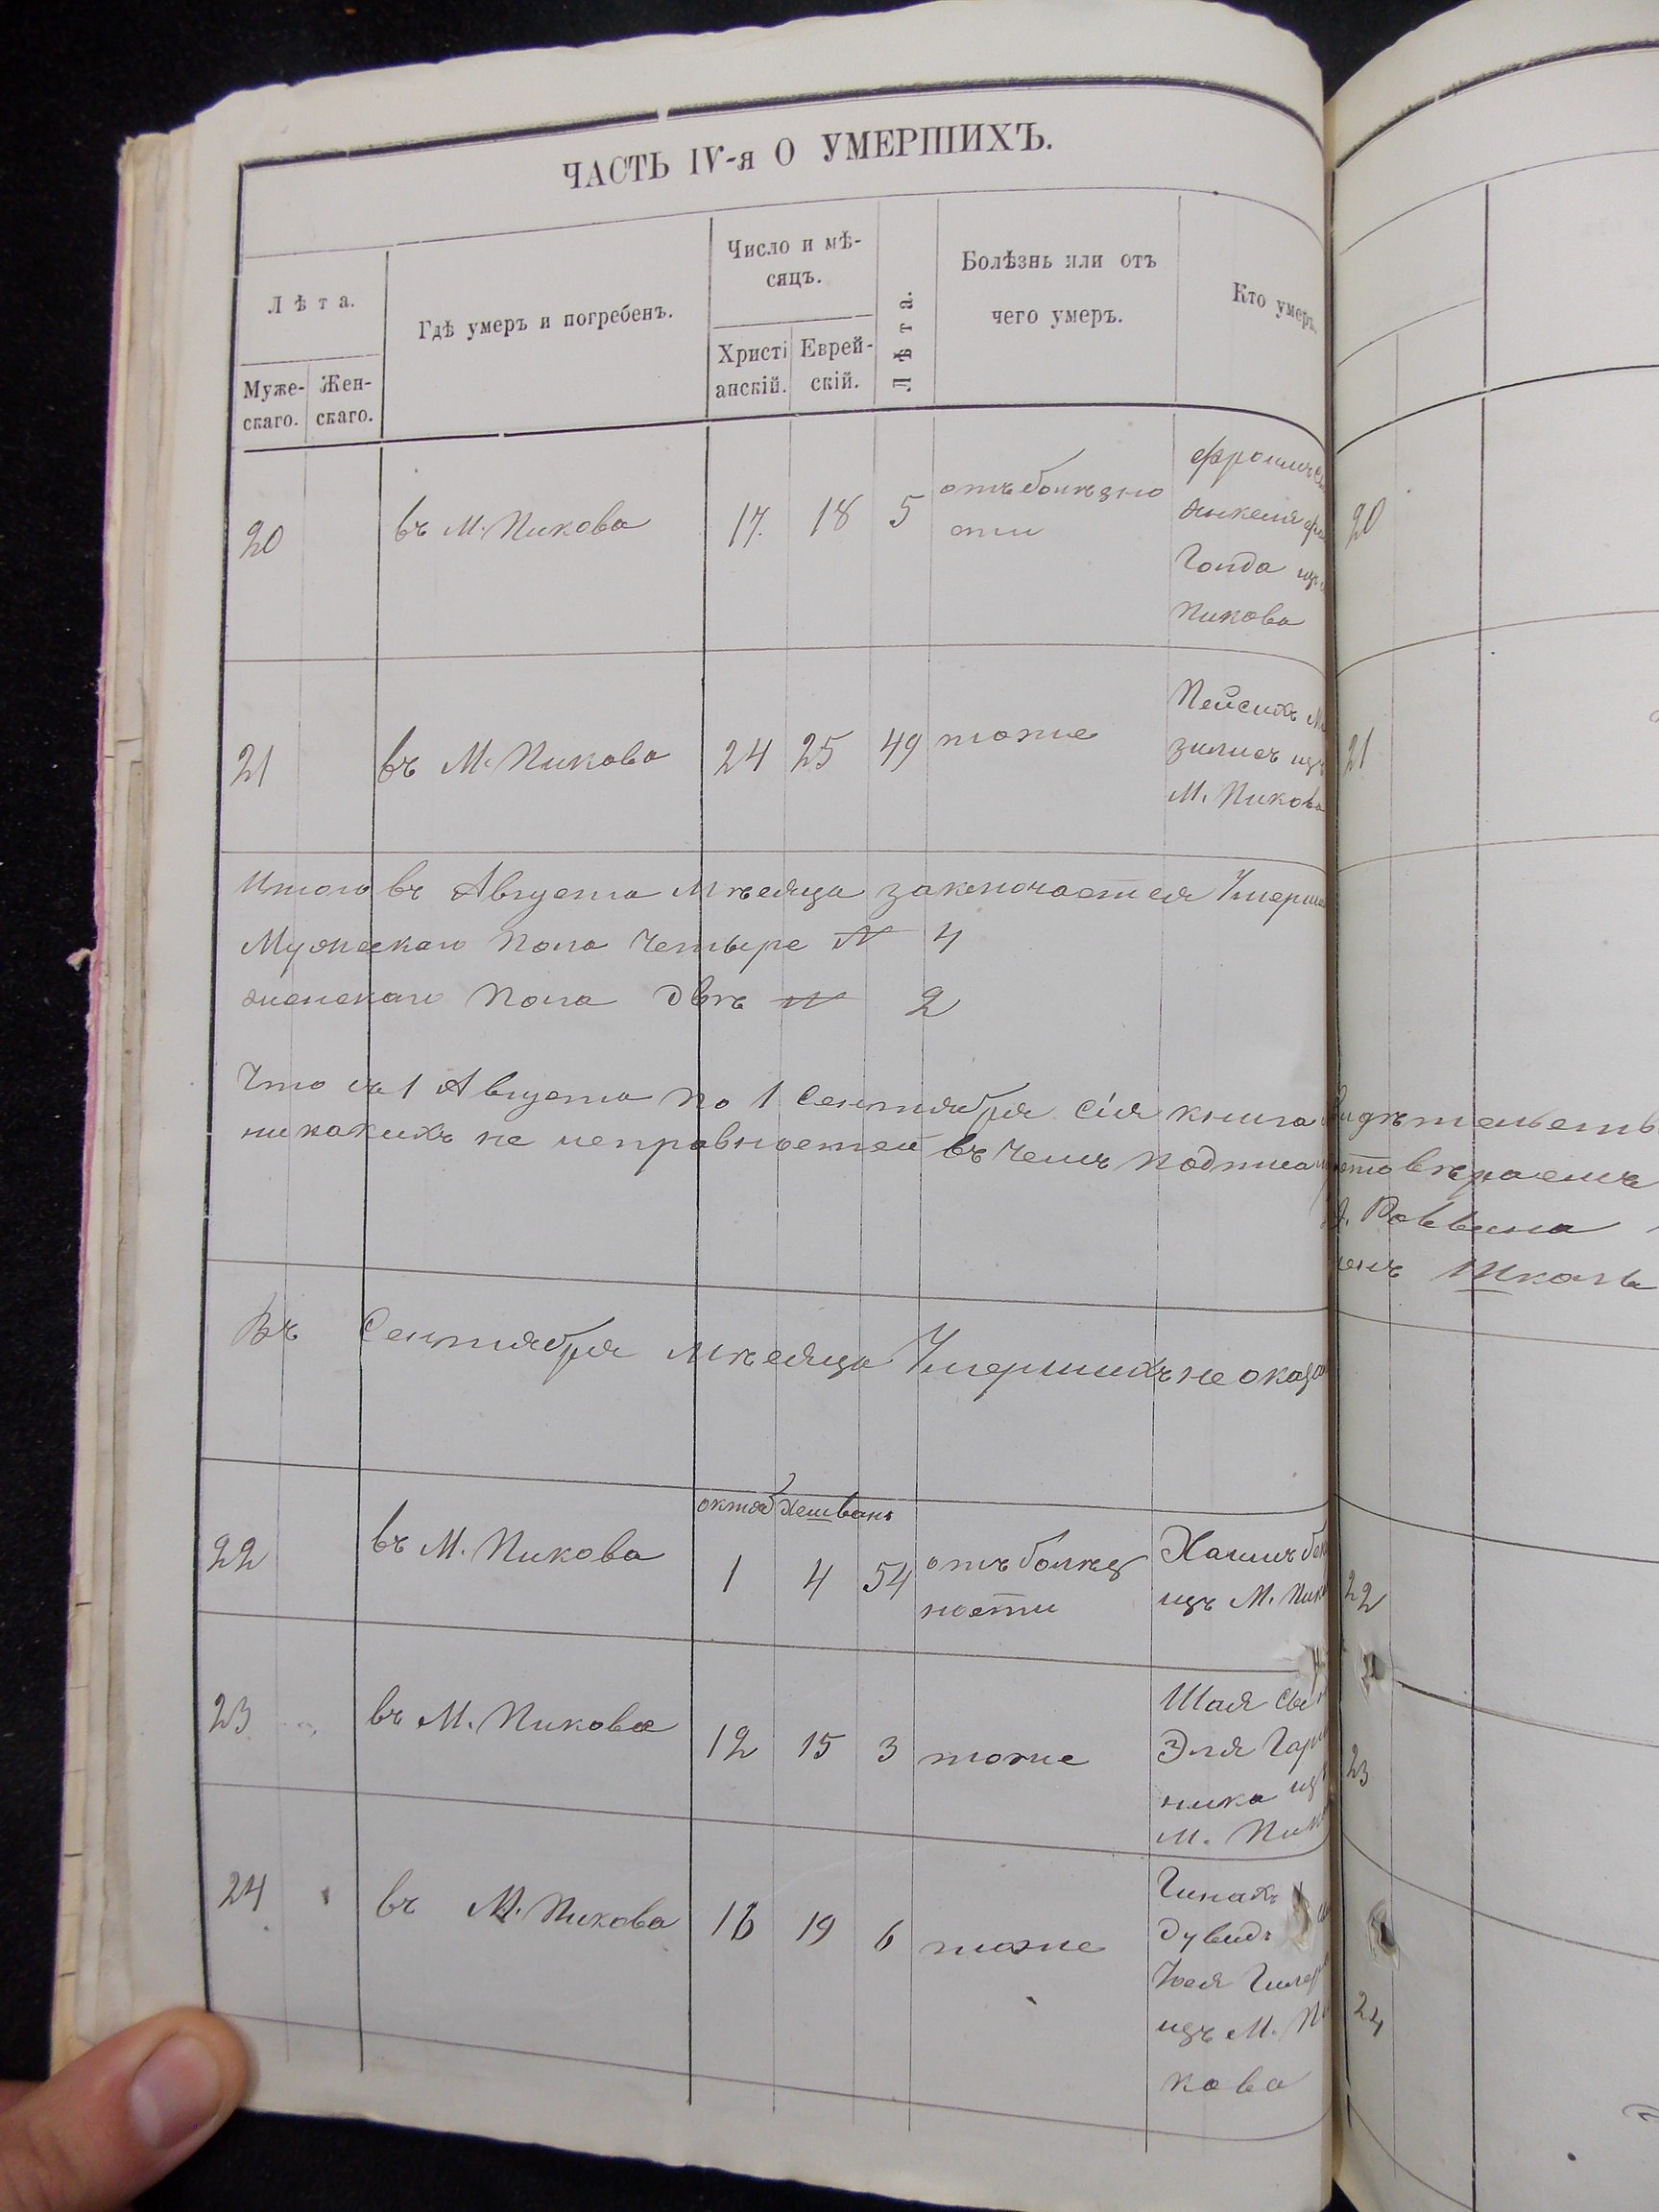 ЧАСТЬ IV-я О УМЕРШИХЪ.
Лѣта.
Муже-
скаго.
Жен-
скаго.
Гдѣ умеръ и погребенъ.
Число и мѣ-
сяцъ.
Христі
анскій.
Еврей-
скій.
Лѣта.
Болѣзнь или отъ
чего умеръ.
Кто умеръ.
20 въ М. Пикова 17. 18 5 отъ болѣзно
сти
Гольда изъ
Пикова
20
21 въ М. Пикова 24 25 49 тоже
Пейсихъ
изъ
М. Пикова
21
Итого въ Августа Мѣсяца заключается Умерш
Мужескаго Пола Четыре № 4
женскаго Пола двѣ № 2
Что съ 1 Августа по 1 Сентября сія книга
никакихъ не исправностей въ чемъ подписа
Раввина
Школы
Въ Сентября Мѣсяца Умершихъ не оказа
октяб хешванъ
22 въ М. Пикова 1 4 54 отъ болѣз
ности
Хаимъ
изъ М. Пик
22
23 въ М. Пикова 12 15 3 тоже
Шая сы
Эля Гар
ника изъ
М. Пик
23
24 въ М. Пикова 16 19 6 тоже
Дувидъ
изъ М. Пи
кова
24